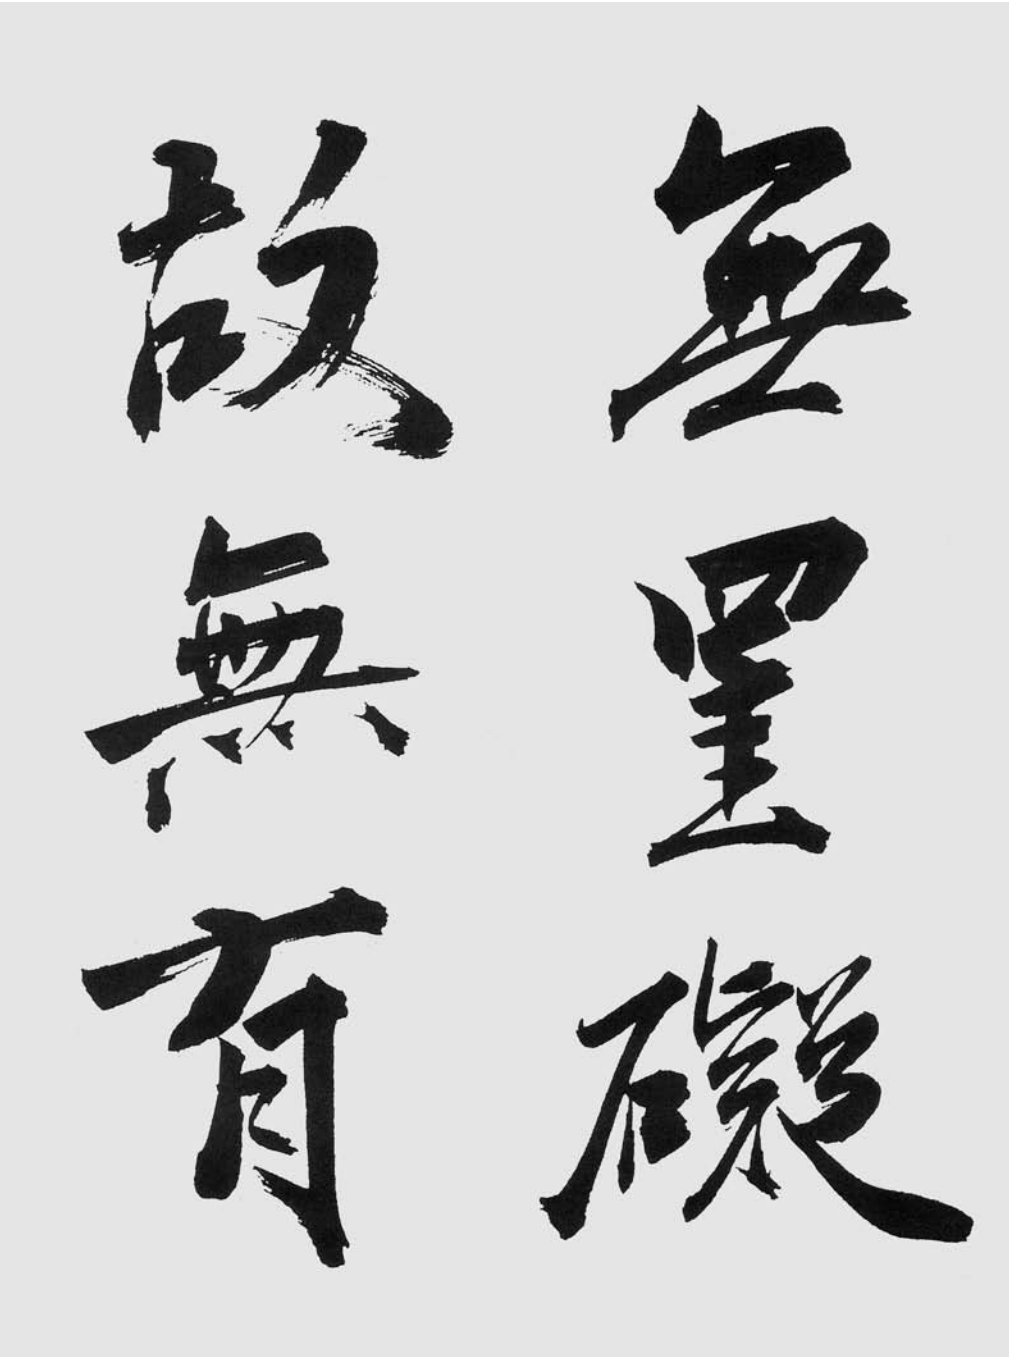 無罣礙
故無有